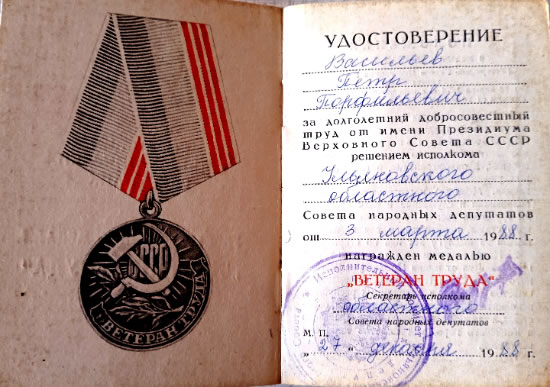 СССР
ВЕТЕРАН ТРУДА
УДОСТОВЕРЕНИЕ
Васильев
Петр
Порфильевич
за долголетний добросовестный
труд от имени Президиума
Верховного Совета СССР
решением исполкома
Ульяновского
областного
Совета народных депутатов
от 3 марта 1988 г.
награжден медалью
„ВЕТЕРАН ТРУДА"
Секретарь исполкома
областного
Совета народных депутатов
М. П.
„27" декабря 1988 г.
Исполнительный